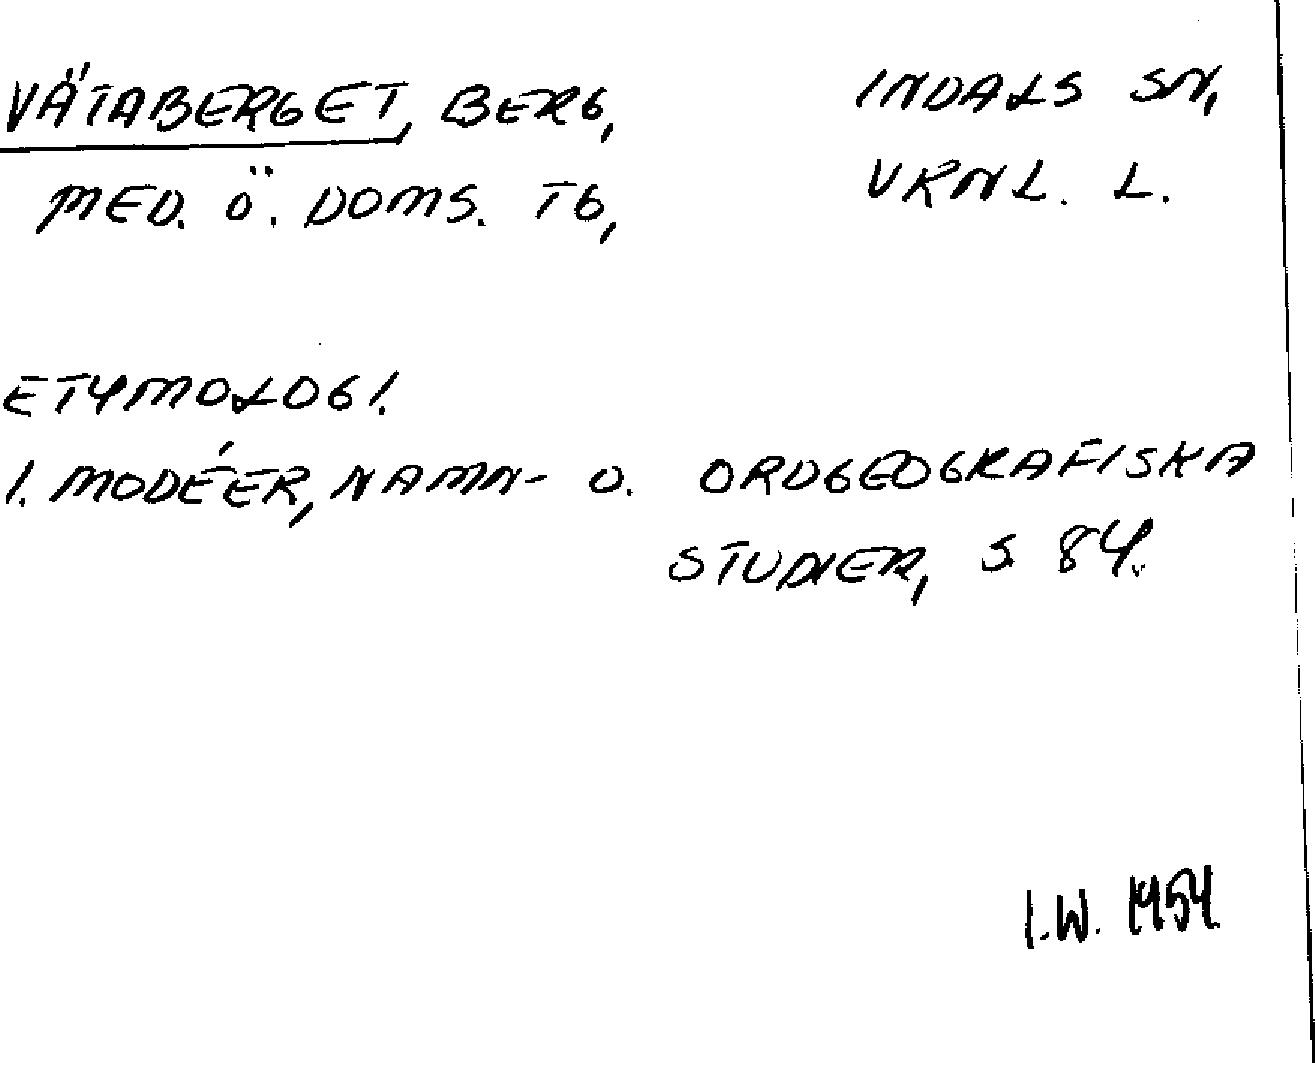 VÄTABERGET, BERG, INDALS SN,
MED. Ö. DOMS. TG, VRNL. L.
ETYMOLOGI.
I. MODÉER, NAMN- O. ORDGEOGRAFISKA
STUDIER, S 84.
I.W. 1954.